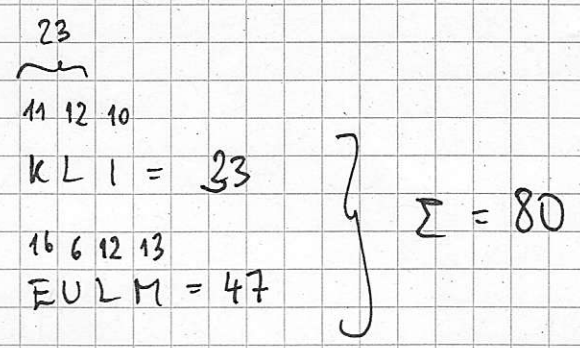 23
11 12 10
K L I = 33
16 6 12 13
E U L M = 47
Σ = 80